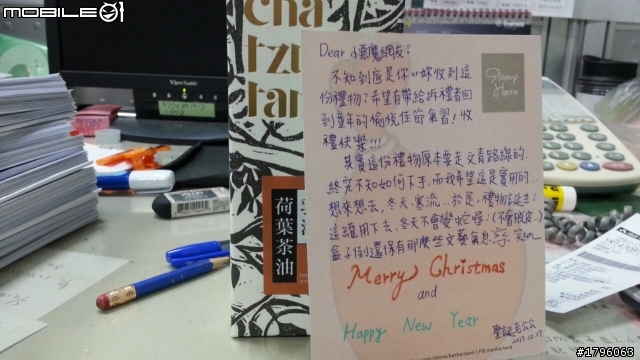 MOBILE01
ViewSonic
cha
tzu
tang
荷葉茶油
Stamp Here
Dear 小惡魔網友：
不知到底是你or妳收到這
份禮物？希望有帶給拆禮者回
到童年的愉悅佳節氣習！收
禮快樂!!!
其實這份禮物原本要走文青路線的，
終究不知如何下手，而我希望這是實用的…
想來想去，冬天、寒流…於是，禮物誕生：
這罐用下去，冬天不會變蛇喔！(不會脫皮…)
盒子倒還保有那麼些文藝氣息，笑納~
Merry Christmas
and
Happy New Year
聖誕老公公
2013.12.17
#1796063